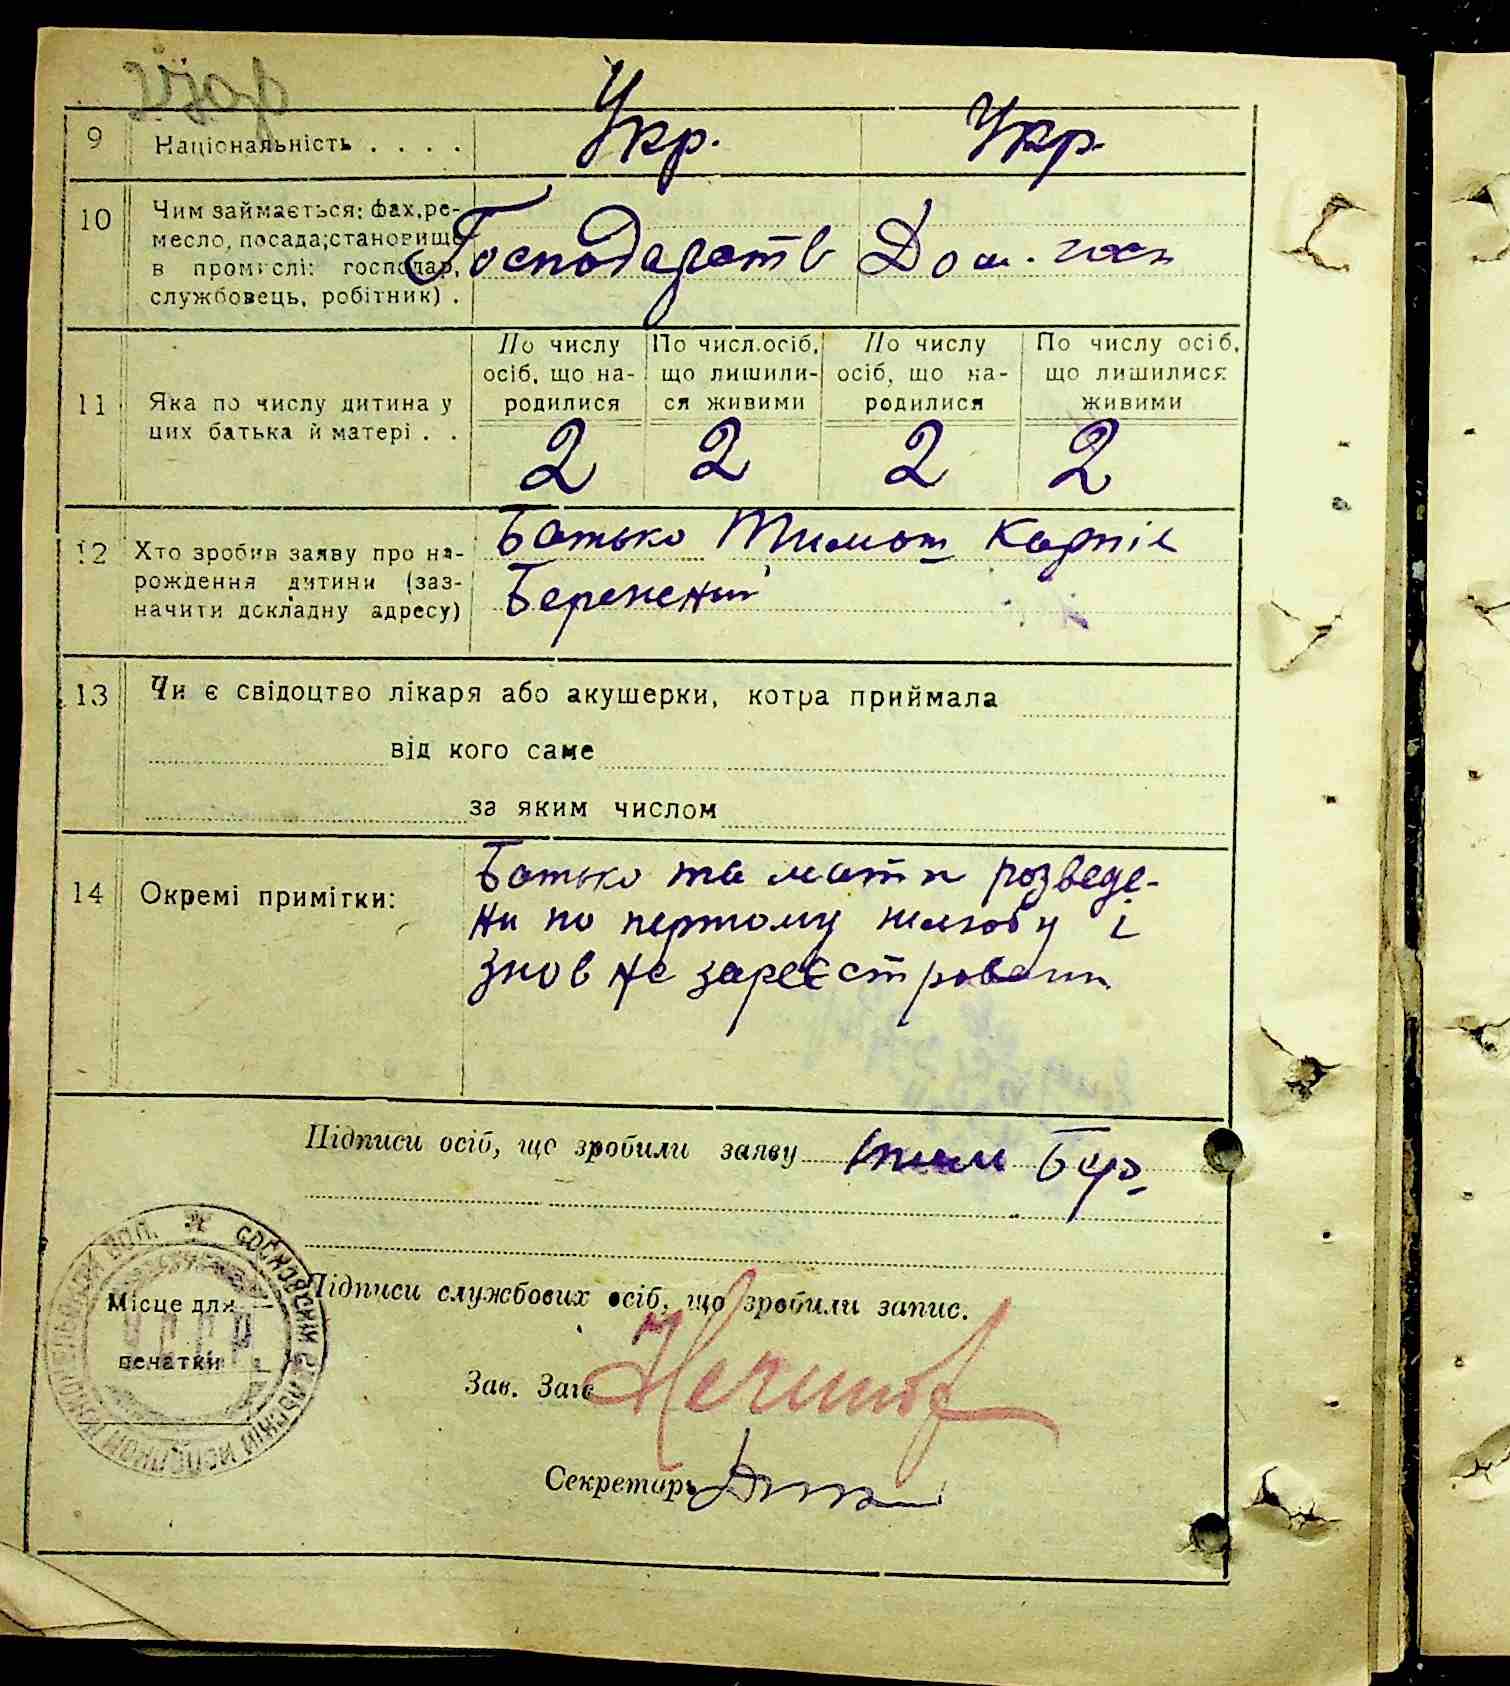 9 Національність . . . . Укр. Укр.
10 Чим займається: фах, ре-
месло, посада; становище
в промислі: господар,
службовець, робітник) .
Господарств Дом. госп
По числу осіб, що на- родилися
По числ. осіб, що лишили- ся живими
По числу осіб, що на- родилися
По числу осіб, що лишилися живими
11 Яка по числу дитина у
цих батька й матері . .
2 2 2 2
12 Хто зробив заяву про на-
рождення дитини (заз-
начити докладну адресу)
Батько Тимош Карпів
Бережний
13 Чи є свідоцтво лікаря або акушерки, котра приймала
від кого саме
за яким числом
14 Окремі примітки:
Батько та мати розведе-
ни по першому шлюбу і
знов не зареєстровани
Підписи осіб, що зробили заяву Бер.
Місце для
печатки
СОСНІВСЬКИЙ
УСРР
Підписи службових осіб, що зробили запис.
Зав. Загс
Секретарь